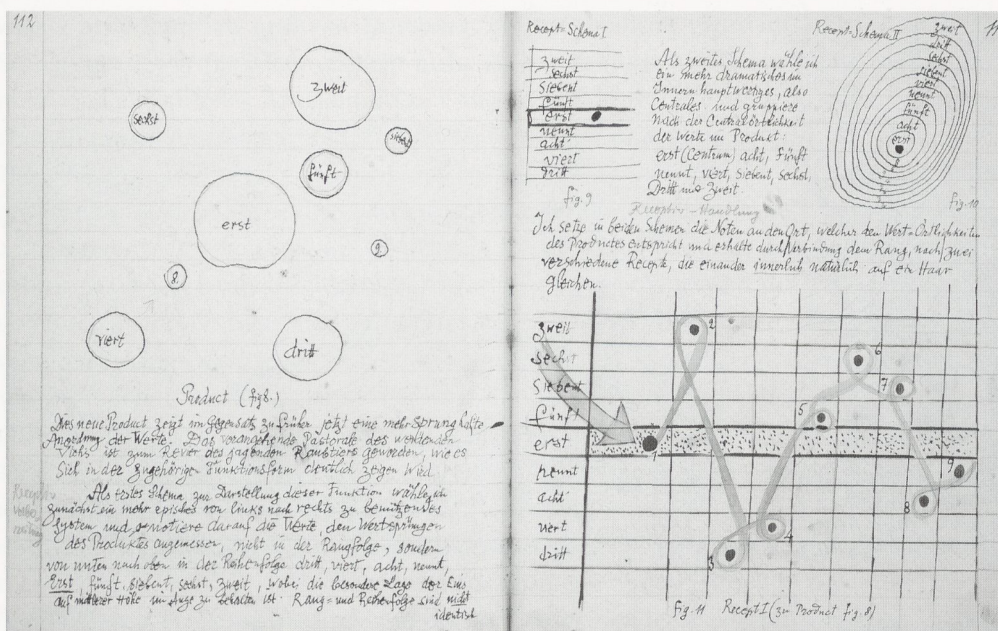 112
zweit
sechst
siebent
fünft
erst
9.
8.
viert
dritt
Product (fig 8.)
Dies neue Product zeigt im Gegensatz zu früher jetzt eine mehr sprunghafte
Anordnung der Werte. Das vorangehende Pastorale des weidenden
Viehs ist zum Revier des jagenden Raubtiers geworden, wie es
sich in der zugehörigen Funktionsform deutlich zeigen wird.
Als erstes Schema zur Darstellung dieser Function wähle ich
zunächst ein mehr episches von links nach rechts zu benützendes
System und notiere darauf die Werte, den Wertsprüngen
des Produktes angemessen, nicht in der Rangfolge, sondern
von unten nach oben in der Reihenfolge dritt, viert, acht, neunt,
Erst fünft, siebent, sechst, zweit, wobei die besondere Lage der Eins
auf mittlerer Höhe im Auge zu behalten ist. Rang- und Reihenfolge sind nicht
identisch
Recept=Schema I
zweit
sechst
siebent
fünft
erst
neunt
acht
viert
dritt
fig. 9
Als zweites Schema wähle ich
ein mehr dramatisches im
Innern hauptwertiges, also
Centrales und gruppiere
nach der Centralörtlichkeit
der Werte im Produkt:
erst (Centrum) acht, fünft
neunt, viert, siebent, sechst,
Dritt und zweit.
Recept=Schema II
zweit
dritt
sechst
siebent
viert
neunt
fünft
acht
erst
fig. 10
Receptiv-Handlung
Ich setze in beiden Schemen die Noten an den Ort, welcher den Wert-Örtlichkeiten
des Productes entspricht und erhalte durch Verbindung dem Rang nach zwei
verschiedene Recepte, die einander innerlich natürlich auf ein Haar
gleichen.
zweit
sechst
siebent
fünft
erst
neunt
acht
viert
dritt
1
2
3
4
5
6
7
8
9
fig. 11 Recept I (zu Product fig. 8)